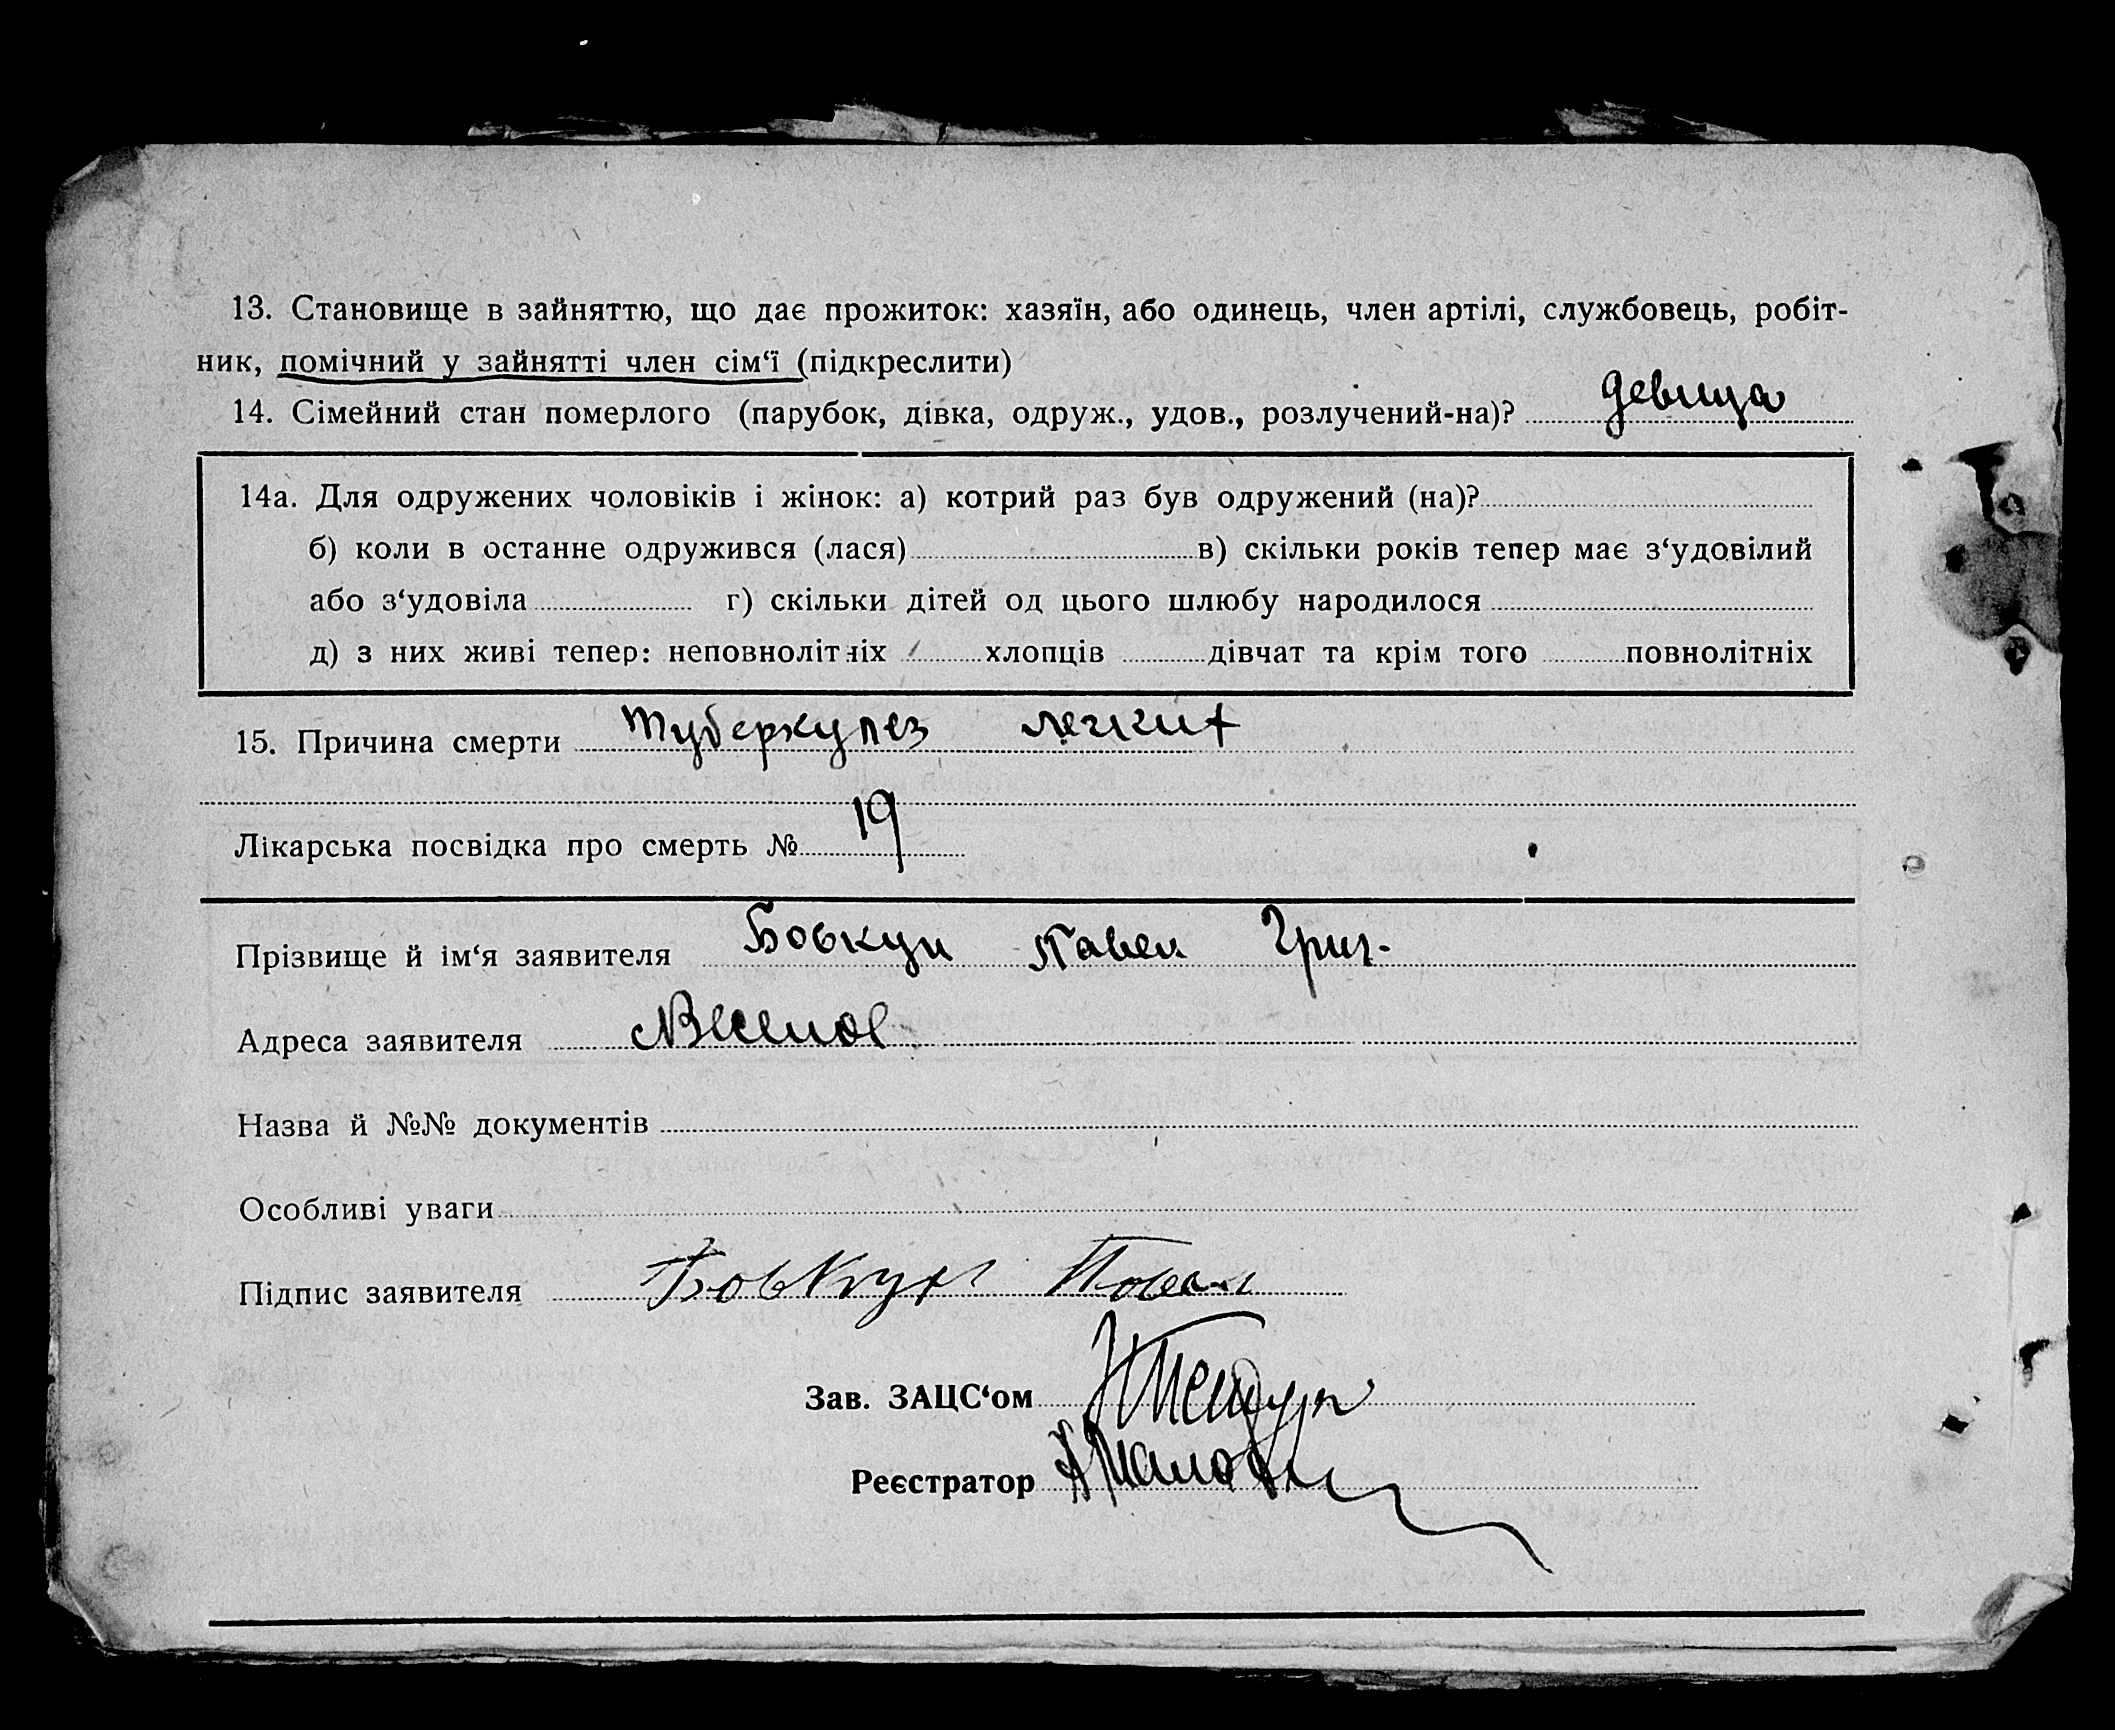 13. Становище в зайняттю, що дає прожиток: хазяїн, або одинець, член артілі, службовець, робіт-
ник, помічний у зайнятті член сім‘ї (підкреслити)
14. Сімейний стан померлого (парубок, дівка, одруж., удов., розлучений-на)? девица
14а. Для одружених чоловіків і жінок: а) котрий раз був одружений (на)?
б) коли в останне одружився (лася) в) скільки років тепер має з‘удовілий
або з‘удовіла г) скільки дітей од цього шлюбу народилося
д) з них живі тепер: неповнолітніх хлопців дівчат та крім того повнолітніх
15. Причина смерти туберкулез легких
Лікарська посвідка про смерть № 19
Прізвище й ім‘я заявителя Бовкун Павел Григ.
Адреса заявителя
Назва й №№ документів
Особливі уваги
Підпис заявителя Бовкун Павел
Зав. ЗАЦС‘ом
Реєстратор